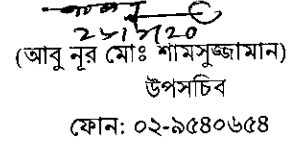 (আবু নূর মোঃ শামসুজ্জামান)
উপসচিব
ফোন: ০২-৯৫৪০৬৫৪